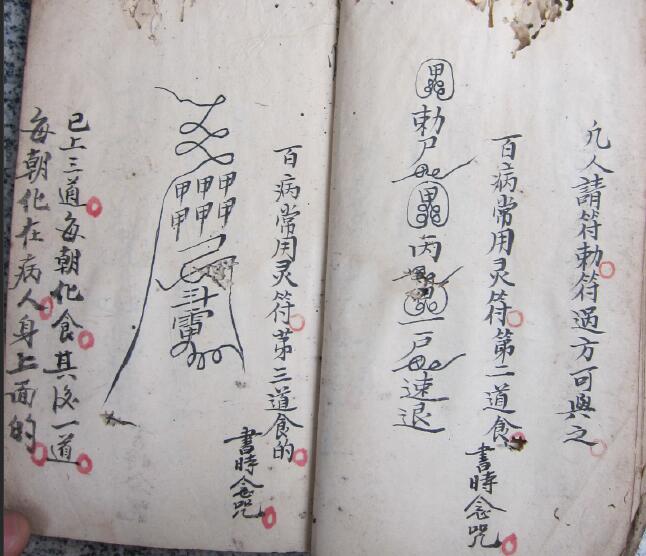 凡人請符勅符過方可與之
百病常用灵符第二道食
書時念咒
勅尸
丙
一尸
速退
百病常用灵符第三道食的
書時念咒
甲甲甲
甲甲甲
斗雷
已上三道每朝化食其後一道
每朝化在病人身上面的